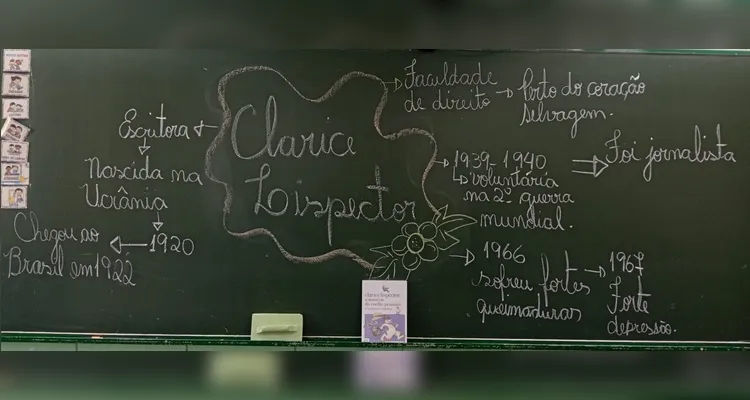 Clarice
Lispector
Escritora
Nascida na
Ucrânia
1920
Chegou ao
Brasil em 1922
Faculdade
de direito
Perto do coração
selvagem.
1939-1940
voluntária
na 2ª guerra
mundial.
Foi jornalista
1966
sofreu fortes
queimaduras
1967
Forte
depressão.
clarice lispector
o mistério
do coelho pensante